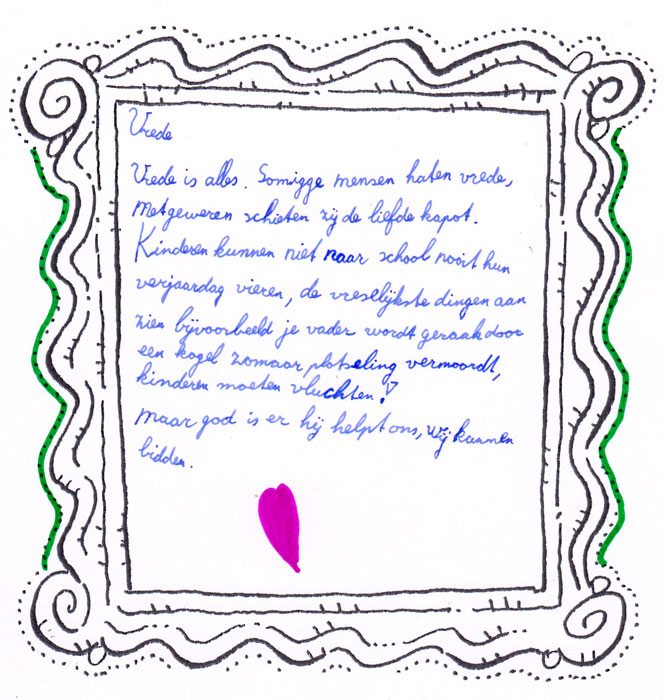 Vrede
Vrede is alles. Somigge mensen haten vrede,
Metgeweren schieten zij de liefde kapot.
Kinderen kunnen niet naar school nooit hun
verjaardag vieren, de vreselijkste dingen aan
zien bijvoorbeeld je vader wordt geraakdoor
een kogel zomaar plotseling vermoordt,
kinderen moeten vluchten!
Maar god is er hij helpt ons, wij kunnen
bidden.